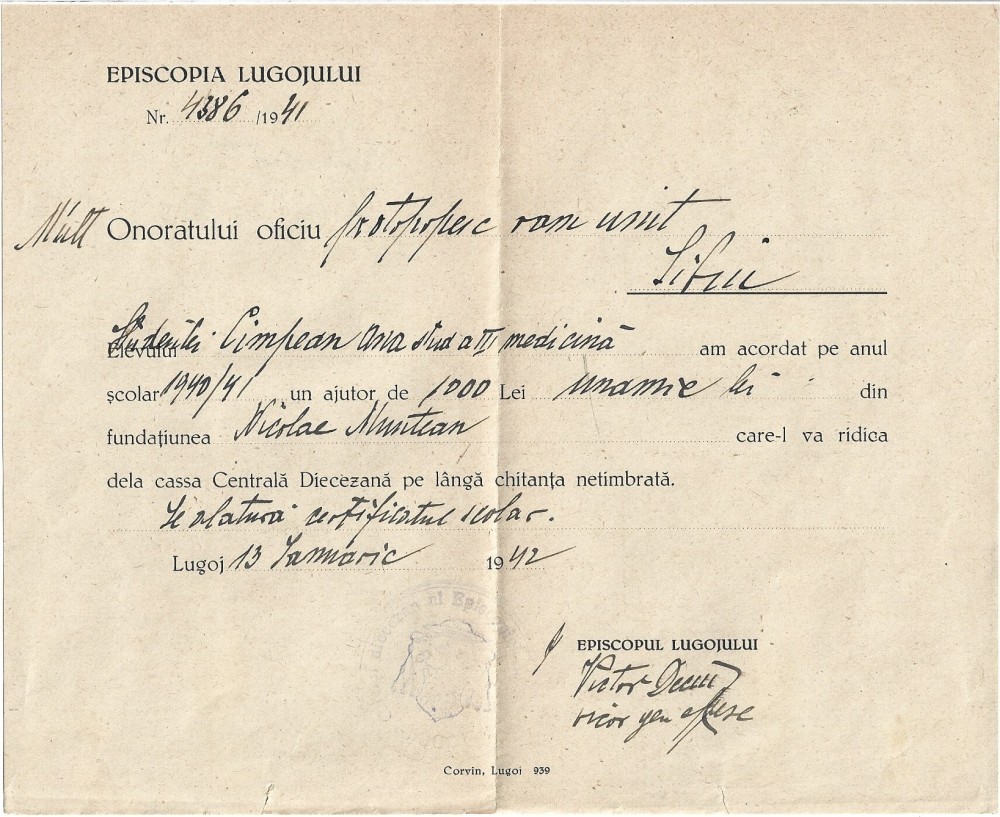 EPISCOPIA LUGOJULUI
Nr. 4386 /1941
Mult Onoratului oficiu protopopesc rom unit
Sibiu
Studentei Cimpean Ana stud a III medicină am acordat pe anul
școlar 1940/41 un ajutor de 1000 Lei unamie lei din
fundațiunea Nicolae Muntean care-l va ridica
dela cassa Centrală Diecezană pe lângă chitanța netimbrată.
Se alatură certificatul scolar.
Lugoj 13 Ianuarie 1942
EPISCOPUL LUGOJULUI
Victor
vicar gen
Corvin, Lugoj 939